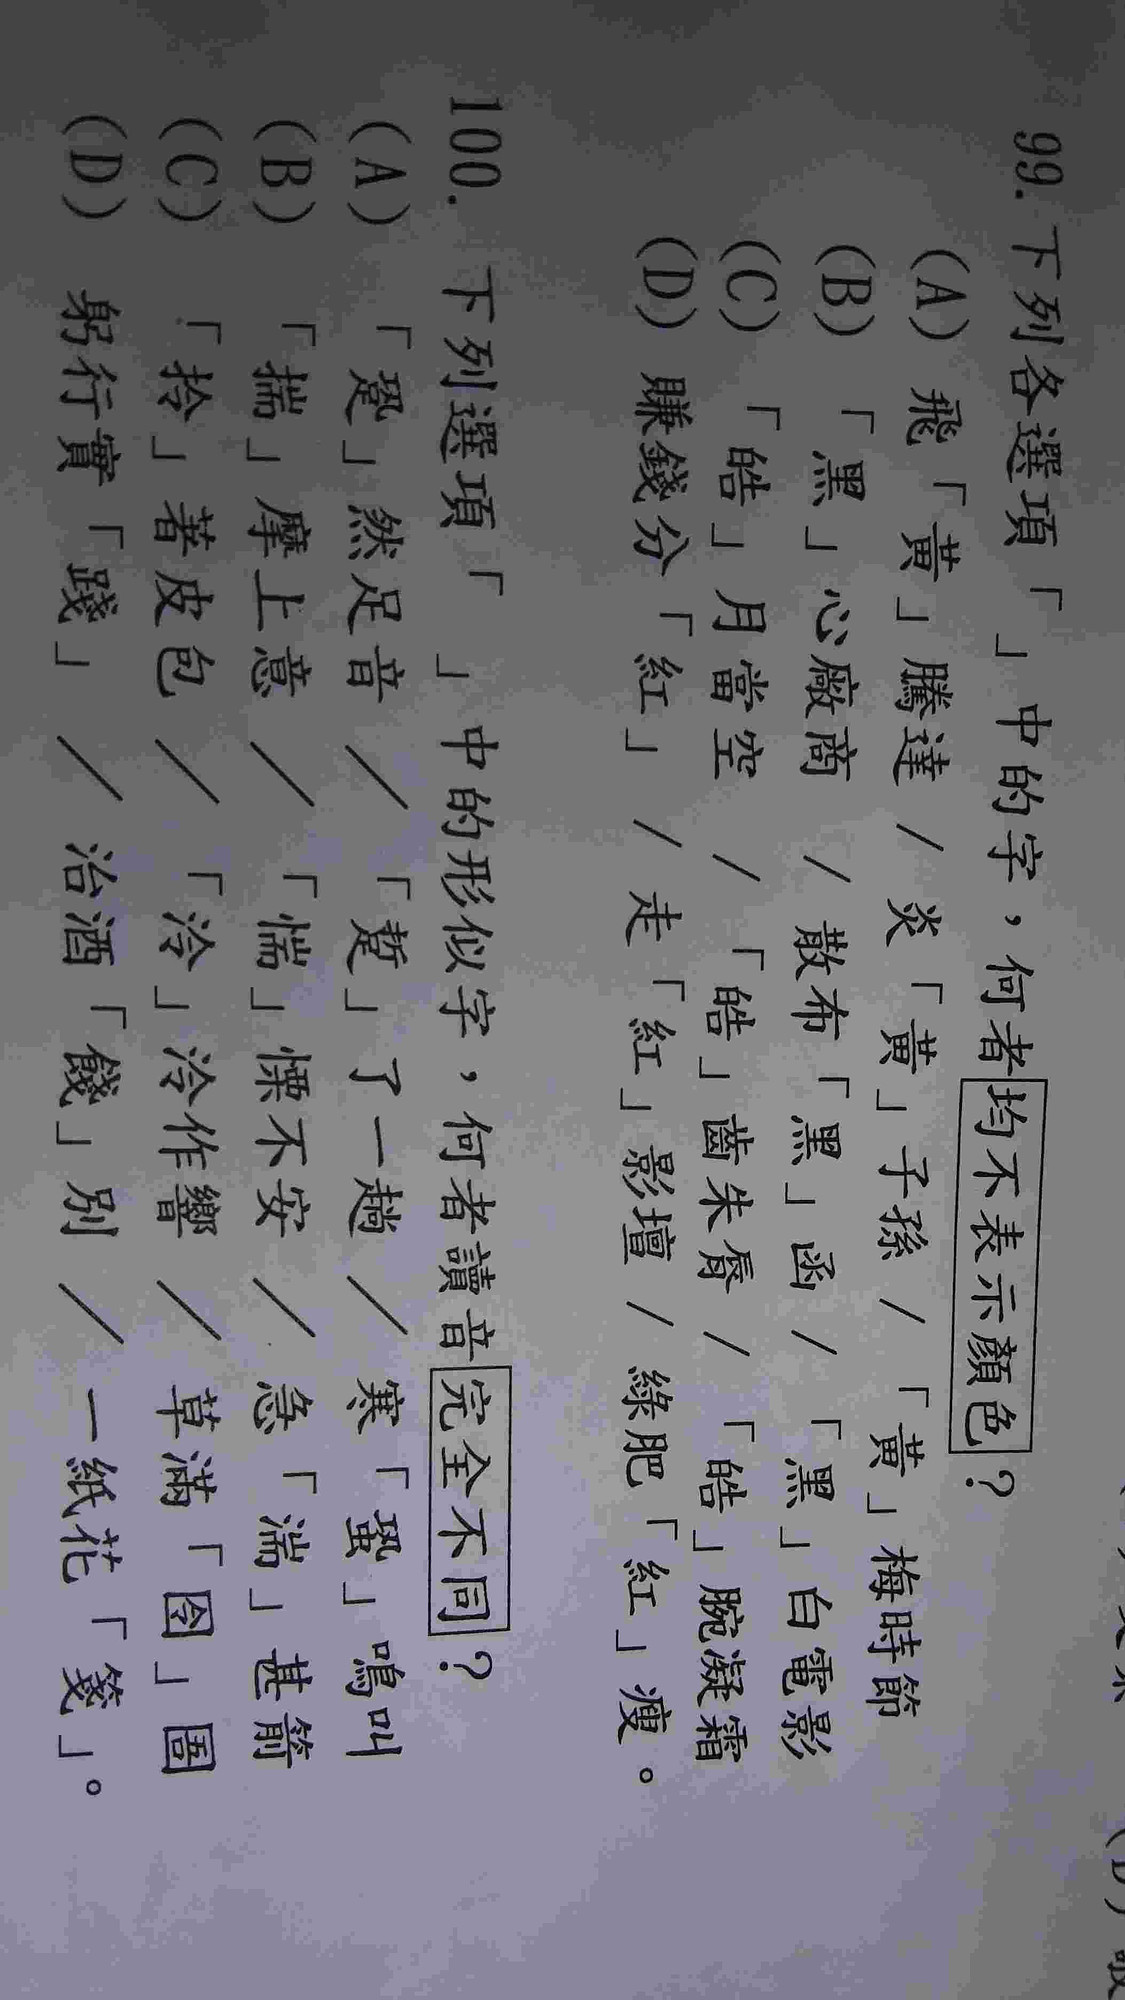 99. 下列各選項「 」中的字，何者均不表示顏色？
(A) 飛「黃」騰達 / 炎「黃」子孫 / 「黃」梅時節
(B) 「黑」心廠商 / 散布「黑」函 / 「黑」白電影
(C) 「皓」月當空 / 「皓」齒朱脣 / 「皓」腕凝霜
(D) 賺錢分「紅」 / 走「紅」影壇 / 綠肥「紅」瘦。
100. 下列選項「 」中的形似字，何者讀音完全不同？
(A) 「跫」然足音 / 「踅」了一趟 / 寒「蛩」鳴叫
(B) 「揣」摩上意 / 「惴」慄不安 / 急「湍」甚箭
(C) 「拎」著皮包 / 「泠」泠作響 / 草滿「囹」圄
(D) 躬行實「踐」 / 治酒「餞」別 / 一紙花「箋」。